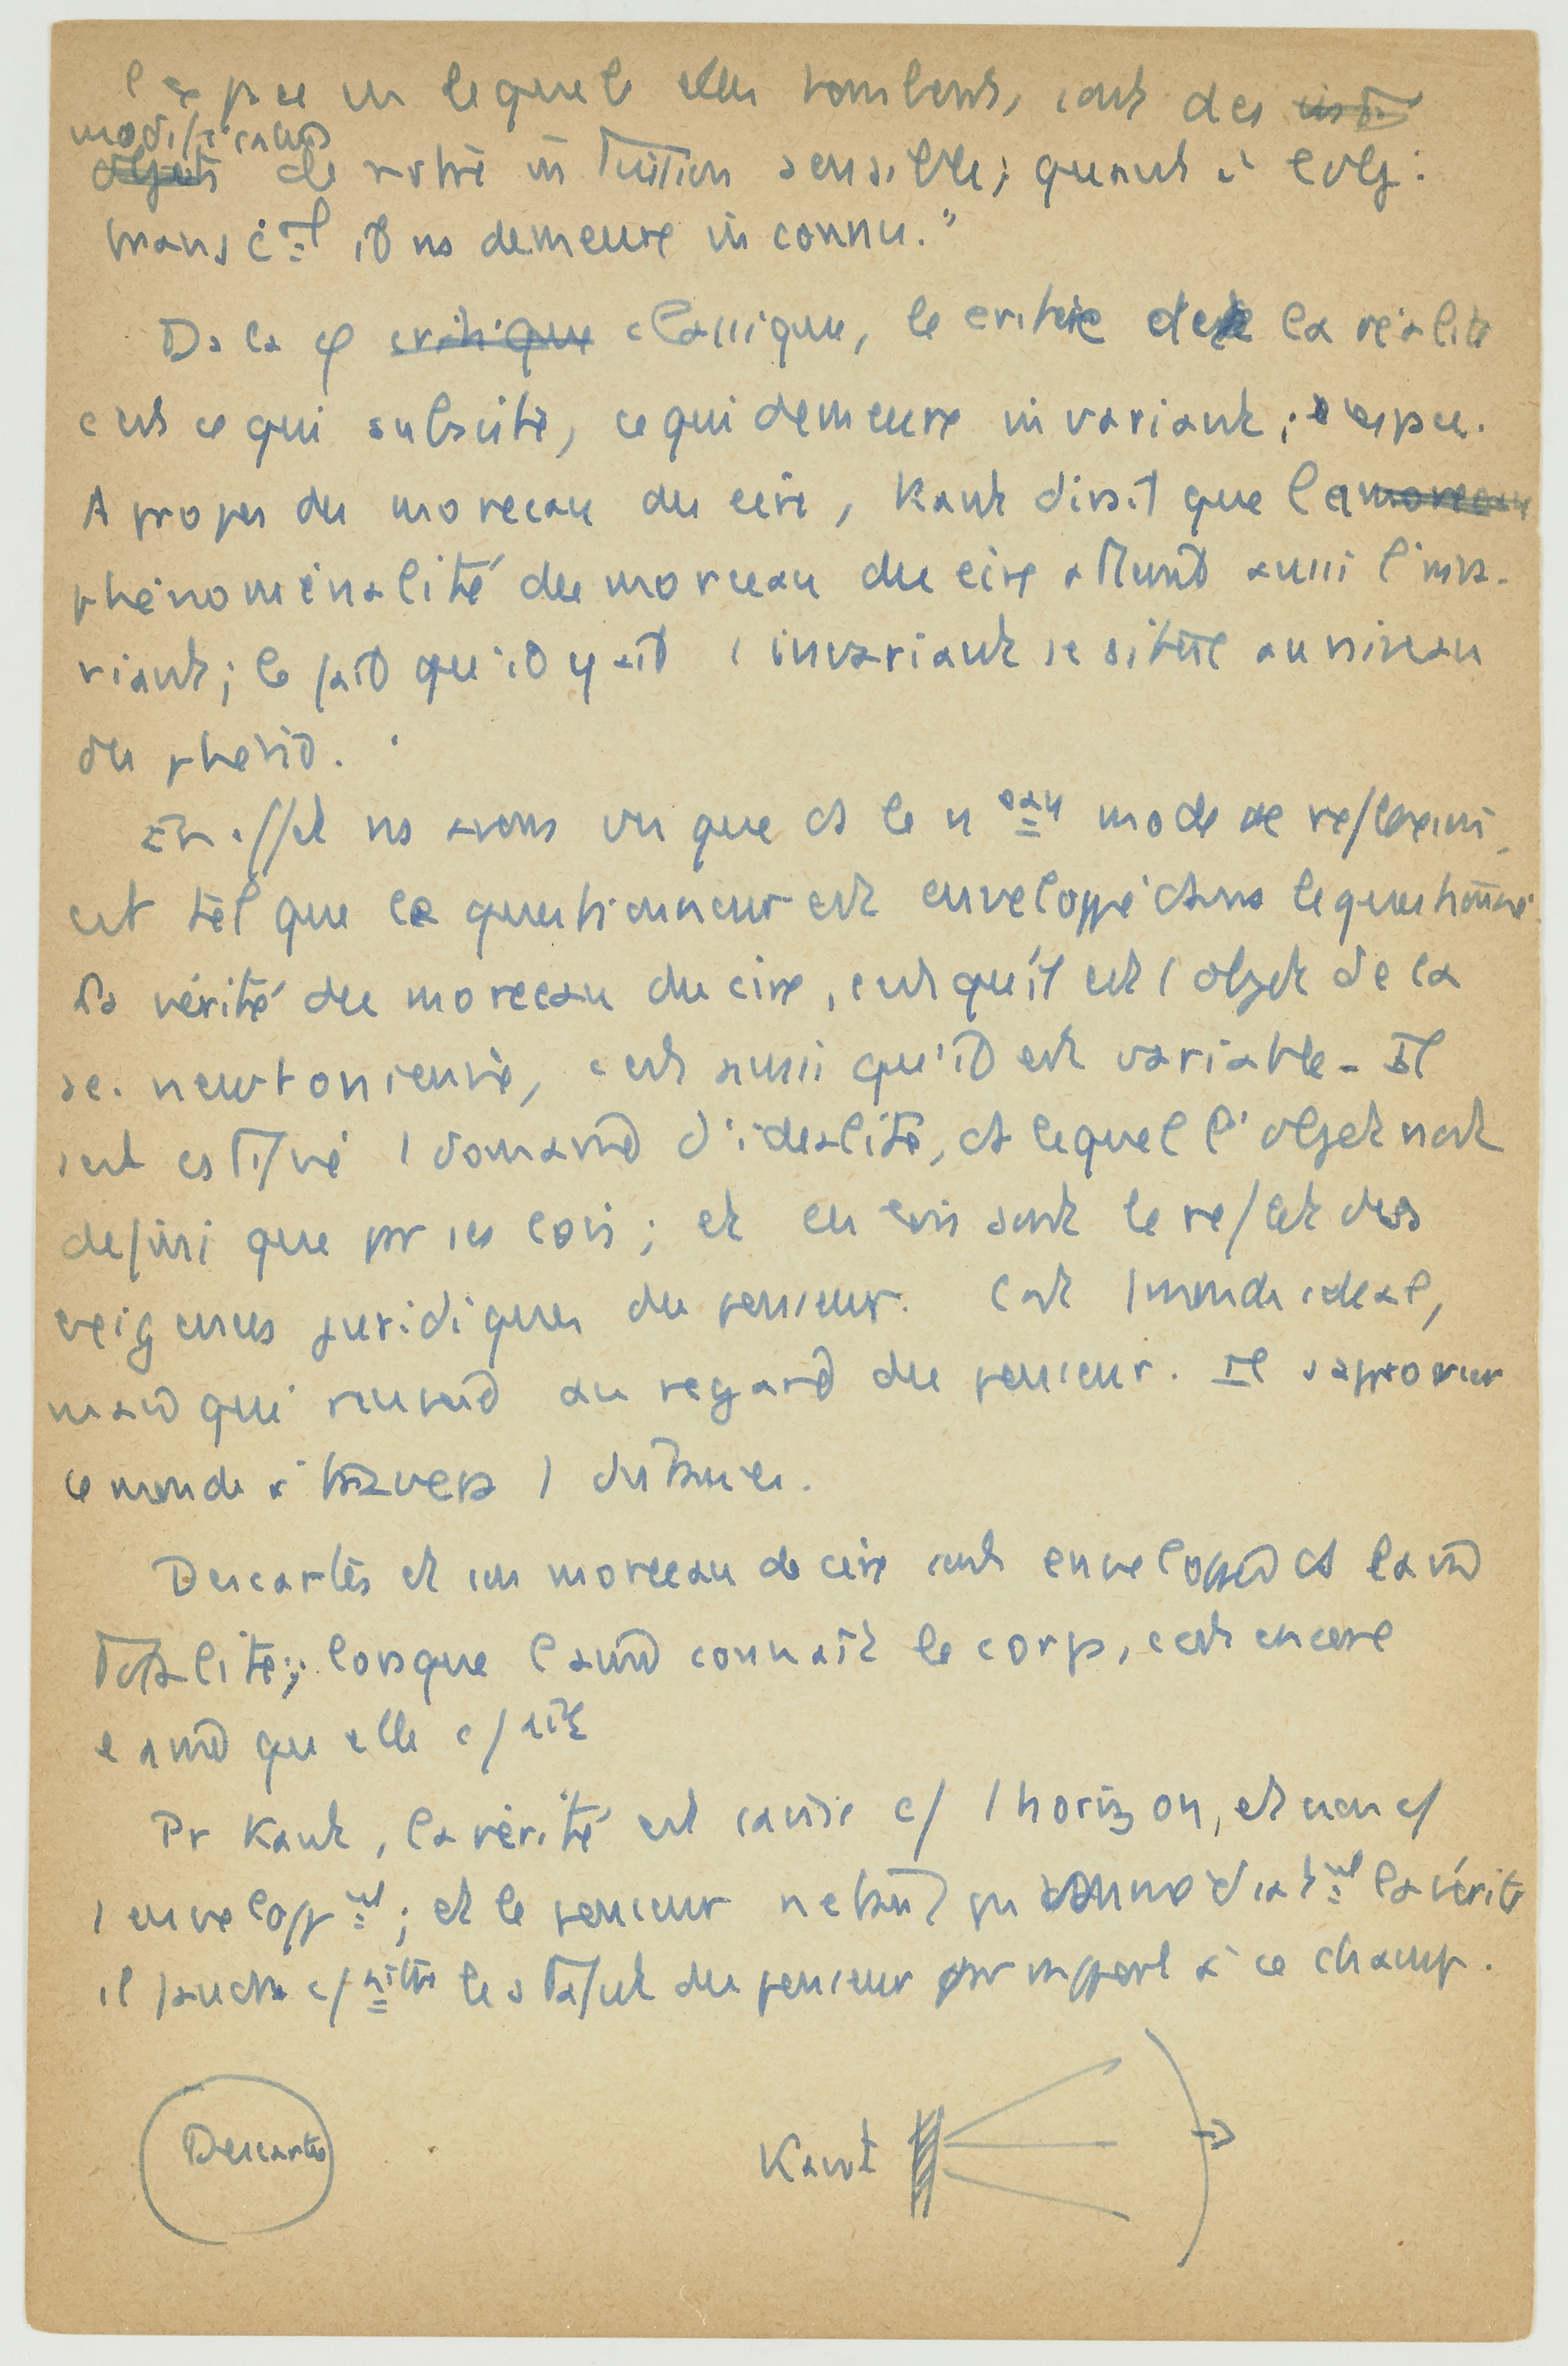 l'espace ds lequel elles tombent, sont des
modifications
objets de notre intuition sensible; quant à l'obj.
transcal il ns demeure inconnu."
Ds la φ critique classique, le critère de la réalité
c'est ce qui subsiste, ce qui demeure invariant;
A propos du morceau de cire, Kant dirait que la morceau
phénoménalité du morceau de cire atteint aussi l'inva-
riant; le fait qu'il y ait 1 invariant se situe au niveau
du phéno.
En effet ns avons vu que ds le neau mode de réflexion
est tel que le questionneur est enveloppé dans le questionné.
La vérité du morceau de cire, c'est qu'il est l'objet de la
sc. newtonienne, c'est aussi qu'il est variable. Il
1 domaine d'idéalité, ds lequel l'objet n'est
défini que pr ses lois; et ces lois sont le reflet des
exigences juridiques du penseur. C'est 1 monde idéal,
mais qui au regard du penseur. Il
ce monde à travers 1 distance.
Descartes et un morceau de cire sont enveloppés ds la même
totalité; lorsque l'âme connaît le corps, c'est encore
l'âme qu'elle c/ait
Pr Kant, la vérité est saisie c/ 1 horizon, et non c/
1 enveloppt; et le penseur ne immédiatt la vérité
il faudra c/aître le statut du penseur par rapport à ce champ.
Descartes
Kant